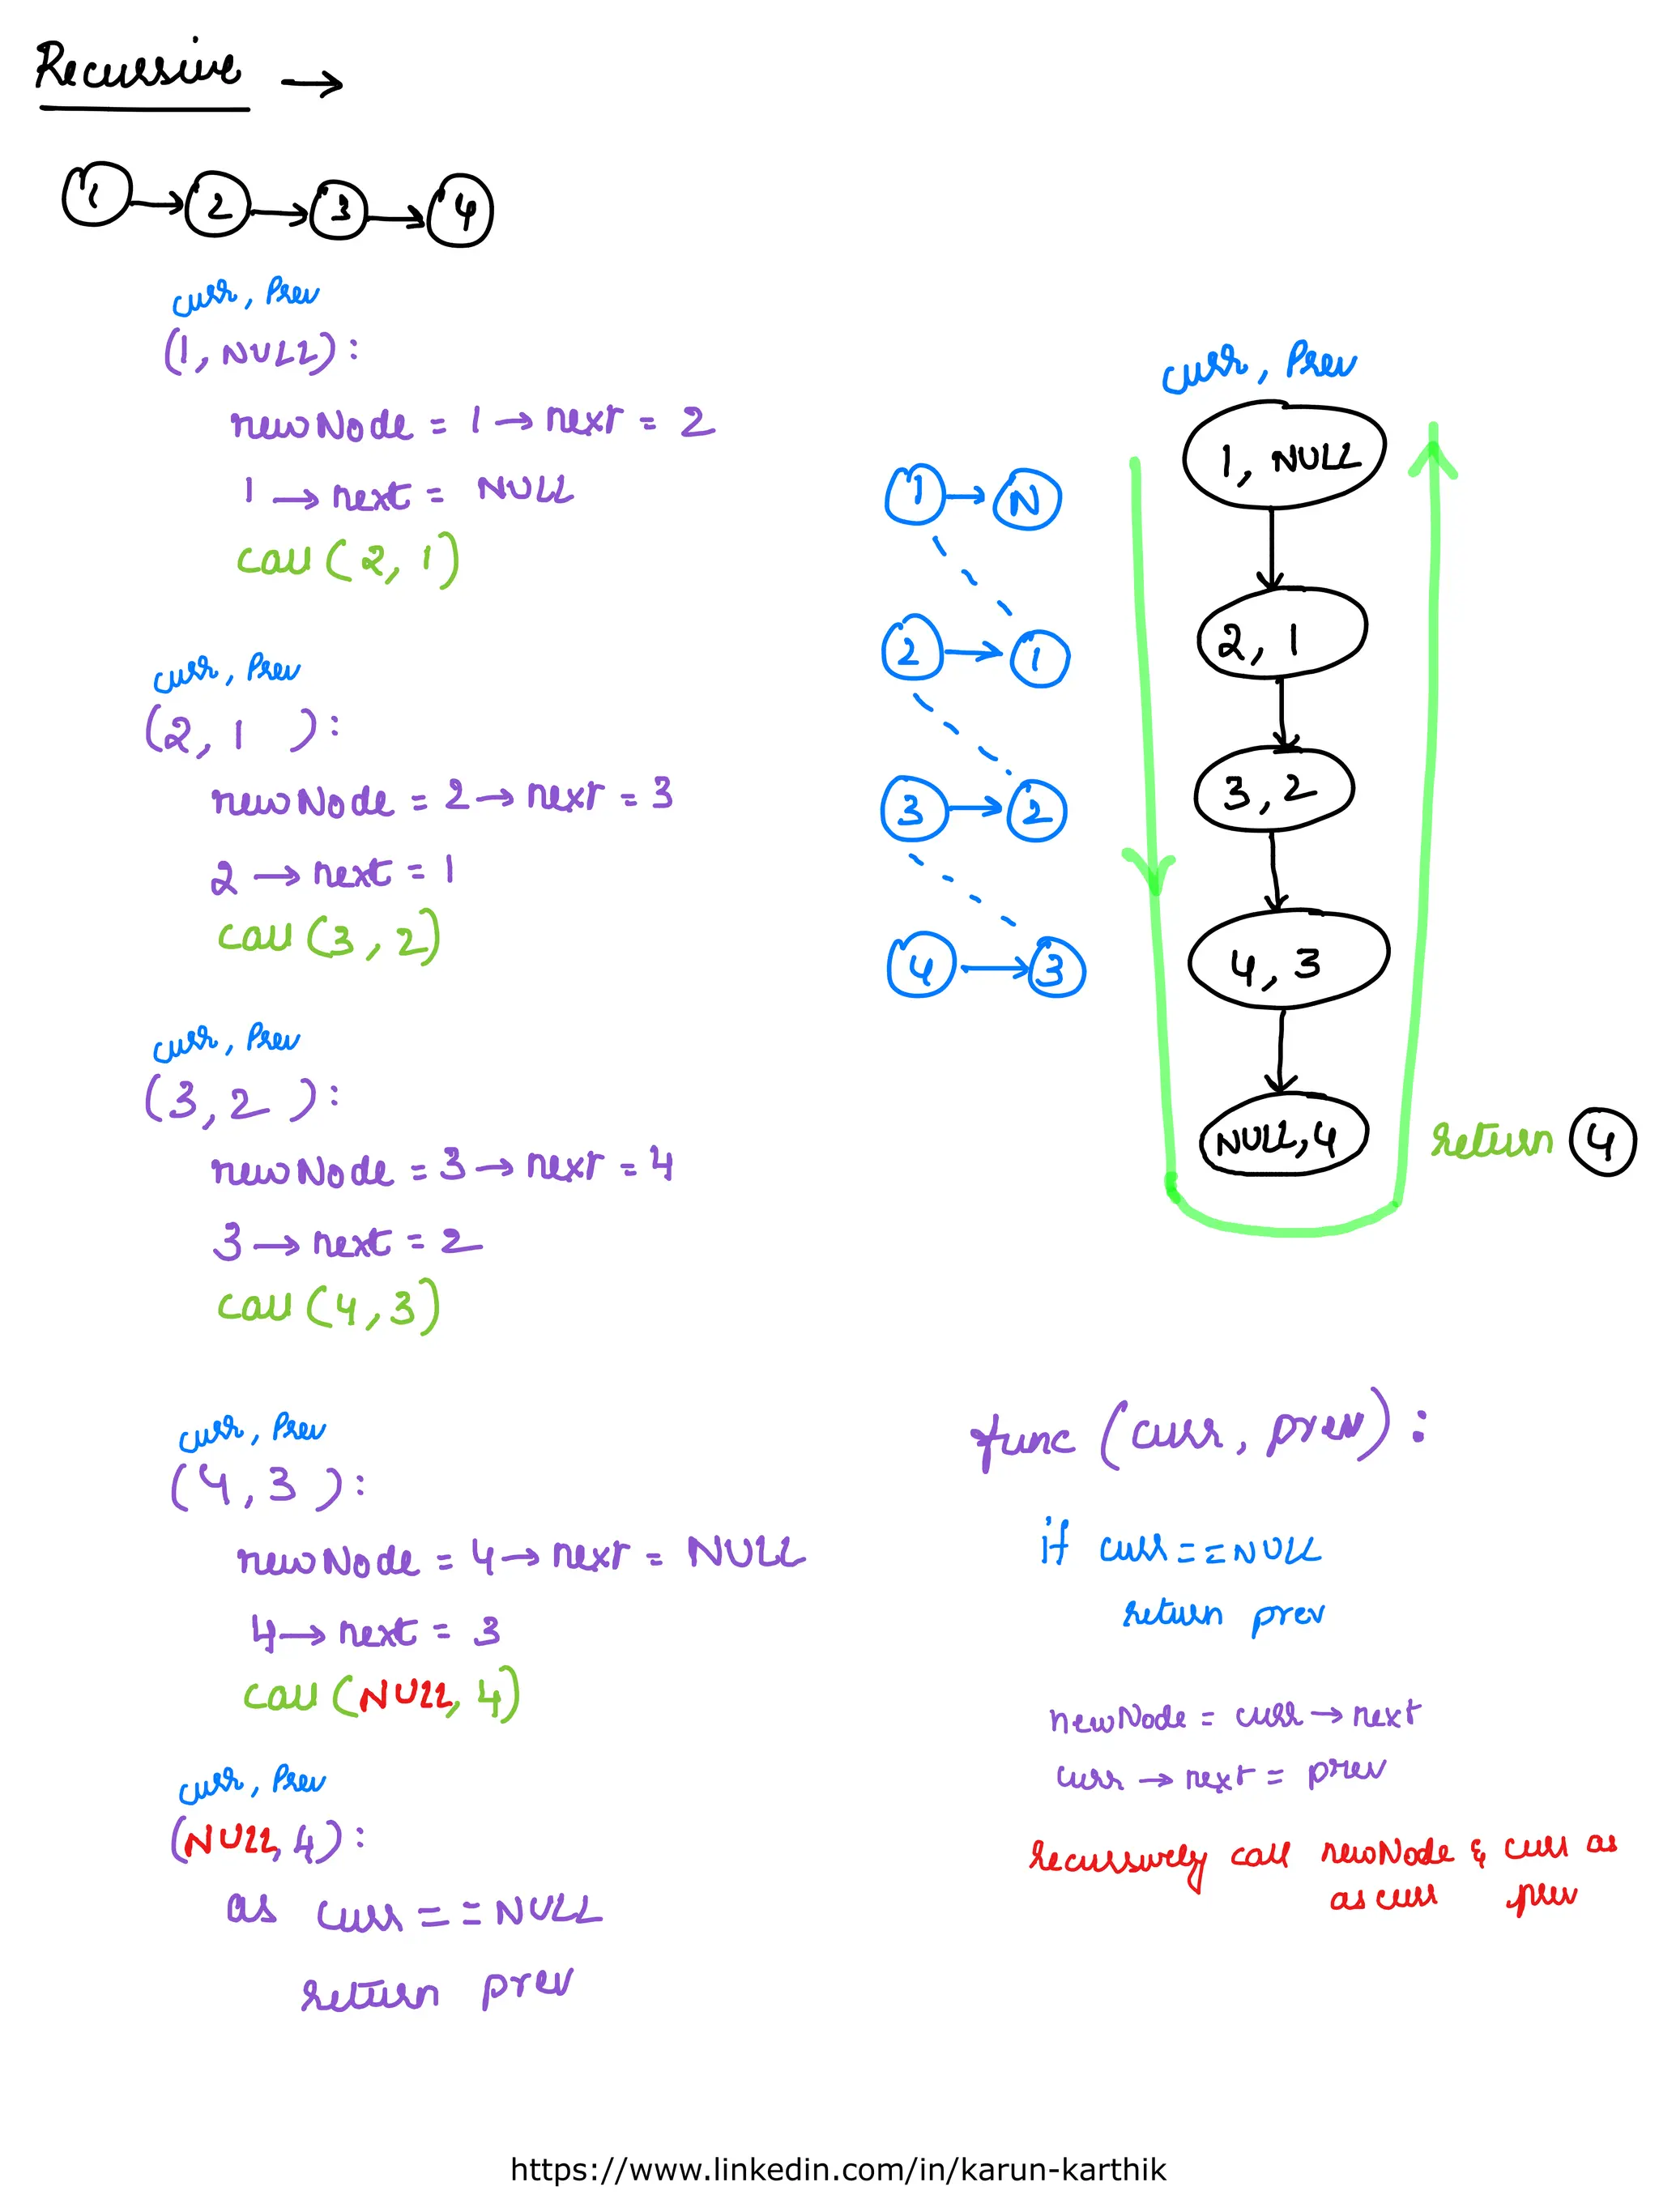 Recursive →
1 → 2 → 3 → 4
curr, Prev
(1, NULL):
newNode = 1 → next = 2
1 → next = NULL
call (2, 1)
curr, Prev
(2, 1 ):
newNode = 2 → next = 3
2 → next = 1
call (3, 2)
curr, Prev
(3, 2 ):
newNode = 3 → next = 4
3 → next = 2
call (4, 3)
curr, Prev
(4, 3 ):
newNode = 4 → next = NULL
4 → next = 3
call (NULL, 4)
curr, Prev
(NULL, 4):
as curr == NULL
return prev
1 → N
2 → 1
3 → 2
4 → 3
curr, Prev
1, NULL
2, 1
3, 2
4, 3
NULL, 4
return 4
func (curr, prev):
if curr == NULL
return prev
newNode = curr → next
curr → next = prev
recurssively call newNode & curr as
as curr prev
https://www.linkedin.com/in/karun-karthik